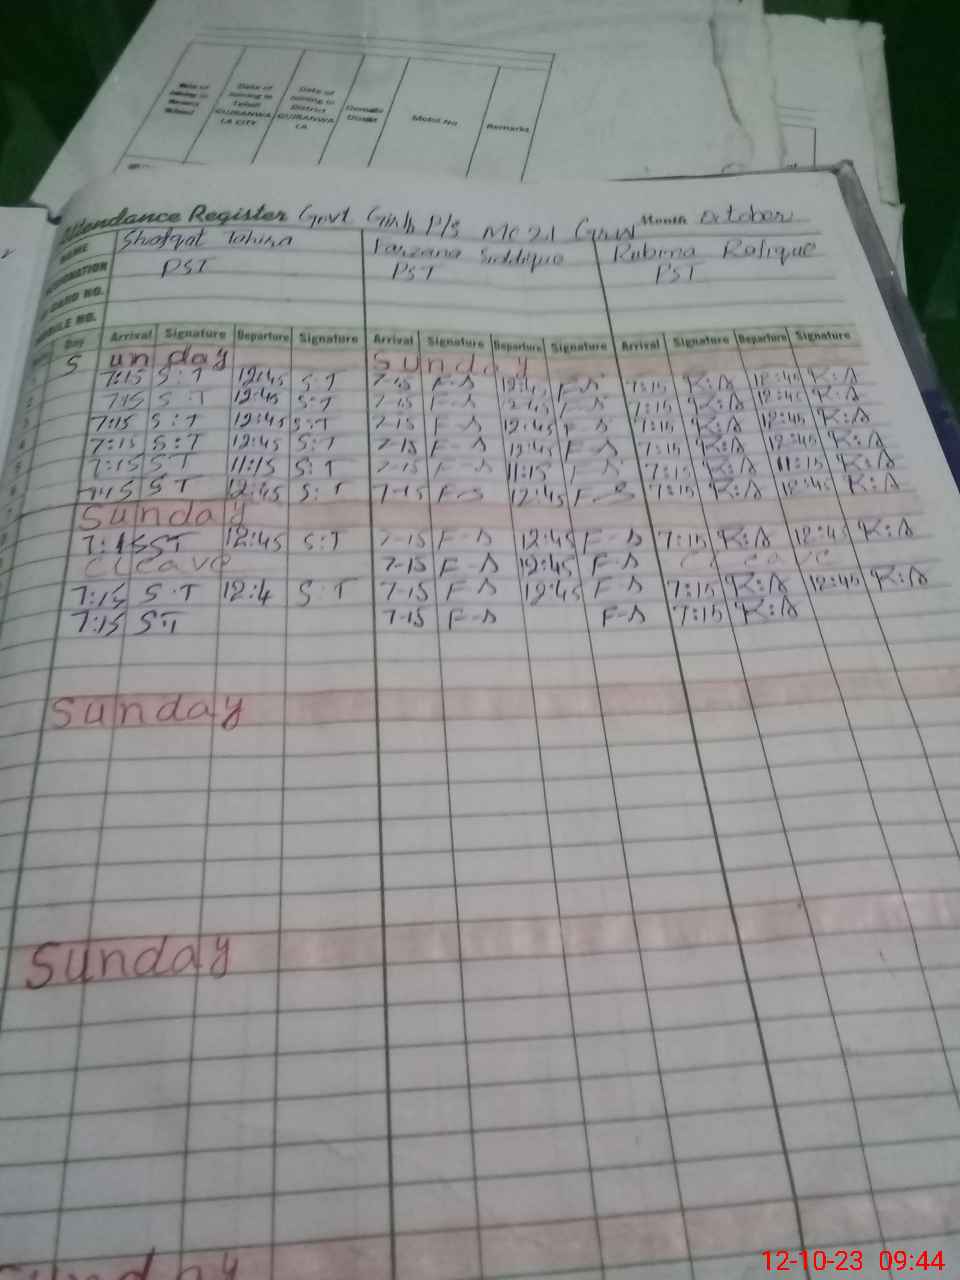 Date of joining in District GUJRANWALA
Mobil No
Remarks
Attendance Register Govt Girls P/S MC 21 Month October
NAME Shafqat Tahira Farzana Siddique Rubina Rafique
PST PST PST
CARD NO.
Day Arrival Signature Departure Signature Arrival Signature Departure Signature Arrival Signature Departure Signature
Sunday Sunday
7:15 S:T 12:45 S:T 7-15 F-S 12:45 F-S 7:15 R:A 12:45 R:A
7:15 S:T 12:45 S:T 7-15 F-S 12:45 F-S 7:15 R:A 12:45 R:A
7:15 S:T 12:45 S:T 7-15 F-S 12:45 F-S 7:15 R:A 12:45 R:A
7:15 S:T 12:45 S:T 7-15 F-S 12:45 F-S 7:15 R:A 12:45 R:A
7:15 S:T 11:15 S:T 7-15 F-S 11:15 F-S 7:15 R:A 11:15 R:A
7:15 S:T 12:45 S:T 7-15 F-S 12:45 F-S 7:15 R:A 12:45 R:A
Sunday
7:15 S:T 12:45 S:T 7-15 F-S 12:45 F-S 7:15 R:A 12:45 R:A
C leave 7-15 F-S 12:45 F-S C leave
7:15 S:T 12:4 S:T 7-15 F-S 12:45 F-S 7:15 R:A 12:45 R:A
7:15 S:T 7-15 F-S F-S 7:15 R:A
Sunday
Sunday
Sunday
12-10-23 09:44